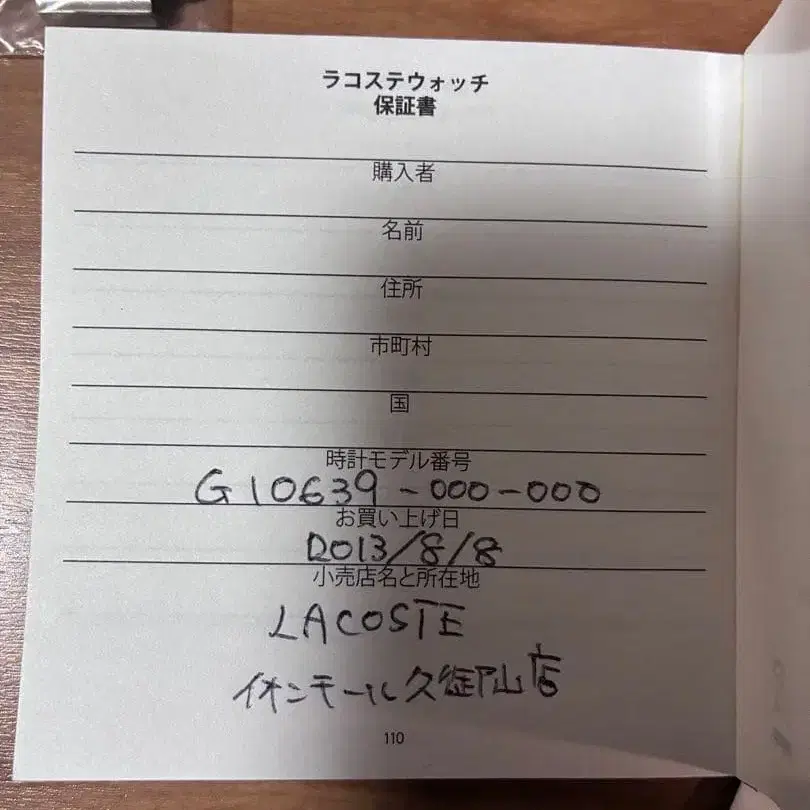 ラコステウォッチ
保証書
購入者
名前
住所
市町村
国
時計モデル番号
G10639-000-000
お買い上げ日
2013/8/8
小売店名と所在地
LACOSTE
イオンモール久御山店
110